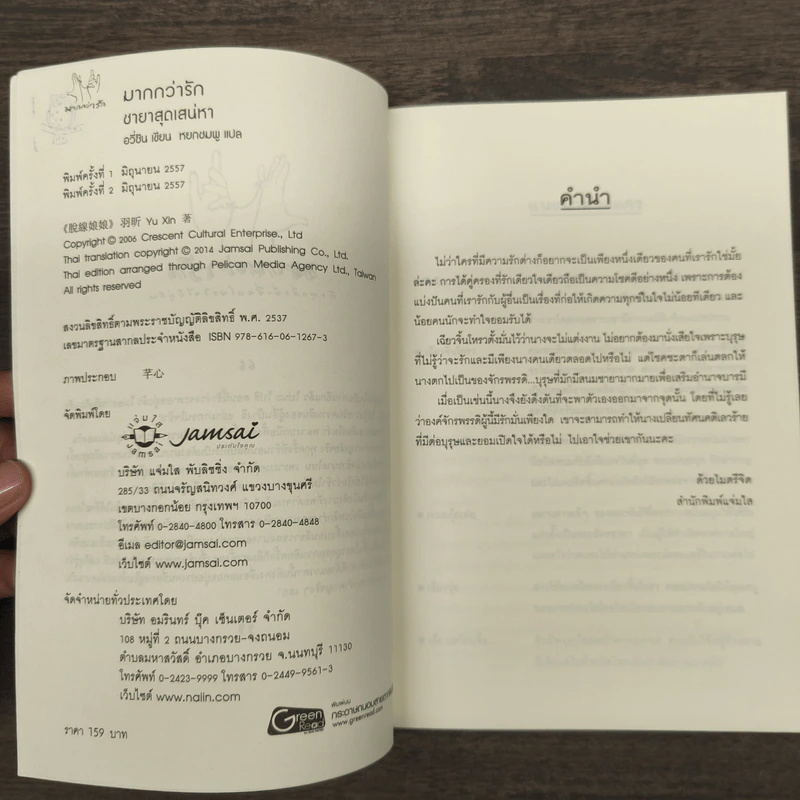 มากกว่ารัก
มากกว่ารัก
ชายาสุดเสน่หา
อวี่ซิน เขียน หยกชมพู แปล
พิมพ์ครั้งที่ 1 มิถุนายน 2557
พิมพ์ครั้งที่ 2 มิถุนายน 2557
《脫線娘娘》 羽昕 Yu Xin 著
Copyright © 2006 Crescent Cultural Enterprise., Ltd
Thai translation copyright © 2014 Jamsai Publishing Co., Ltd.
Thai edition arranged through Pelican Media Agency Ltd., Taiwan
All rights reserved
สงวนลิขสิทธิ์ตามพระราชบัญญัติลิขสิทธิ์ พ.ศ. 2537
เลขมาตรฐานสากลประจำหนังสือ ISBN 978-616-06-1267-3
ภาพประกอบ 芊心
จัดพิมพ์โดย
แจ่มใส
Jamsai
Jamsai
ประทับใจคุณ
บริษัท แจ่มใส พับลิชชิ่ง จำกัด
285/33 ถนนจรัญสนิทวงศ์ แขวงบางขุนศรี
เขตบางกอกน้อย กรุงเทพฯ 10700
โทรศัพท์ 0-2840-4800 โทรสาร 0-2840-4848
อีเมล editor@jamsai.com
เว็บไซต์ www.jamsai.com
จัดจำหน่ายทั่วประเทศโดย
บริษัท อมรินทร์ บุ๊ค เซ็นเตอร์ จำกัด
108 หมู่ที่ 2 ถนนบางกรวย-จงถนอม
ตำบลมหาสวัสดิ์ อำเภอบางกรวย จ.นนทบุรี 11130
โทรศัพท์ 0-2423-9999 โทรสาร 0-2449-9561-3
เว็บไซต์ www.naiin.com
Green
Read
พิมพ์บน
กระดาษถนอมสายตา
www.greenread.com
ราคา 159 บาท
คำนำ
ไม่ว่าใครที่มีความรักต่างก็อยากจะเป็นเพียงหนึ่งเดียวของคนที่เรารักใช่มั้ย
ล่ะคะ การได้คู่ครองที่รักเดียวใจเดียวถือเป็นความโชคดีอย่างหนึ่ง เพราะการต้อง
แบ่งปันคนที่เรารักกับผู้อื่นเป็นเรื่องที่ก่อให้เกิดความทุกข์ในใจไม่น้อยทีเดียว และ
น้อยคนนักจะทำใจยอมรับได้
เฉียวจิ้นโหรวตั้งมั่นไว้ว่านางจะไม่แต่งงาน ไม่อยากต้องมานั่งเสียใจเพราะบุรุษ
ที่ไม่รู้ว่าจะรักและมีเพียงนางคนเดียวตลอดไปหรือไม่ แต่โชคชะตาก็เล่นตลกให้
นางตกไปเป็นของจักรพรรดิ...บุรุษที่มักมีสนมชายามากมายเพื่อเสริมอำนาจบารมี
เมื่อเป็นเช่นนี้นางจึงยังดึงดันที่จะพาตัวเองออกมาจากจุดนั้น โดยที่ไม่รู้เลย
ว่าองค์จักรพรรดิผู้นี้มีรักมั่นเพียงใด เขาจะสามารถทำให้นางเปลี่ยนทัศนคติเลวร้าย
ที่มีต่อบุรุษและยอมเปิดใจได้หรือไม่ ไปเอาใจช่วยเขากันนะคะ
ด้วยไมตรีจิต
สำนักพิมพ์แจ่มใส